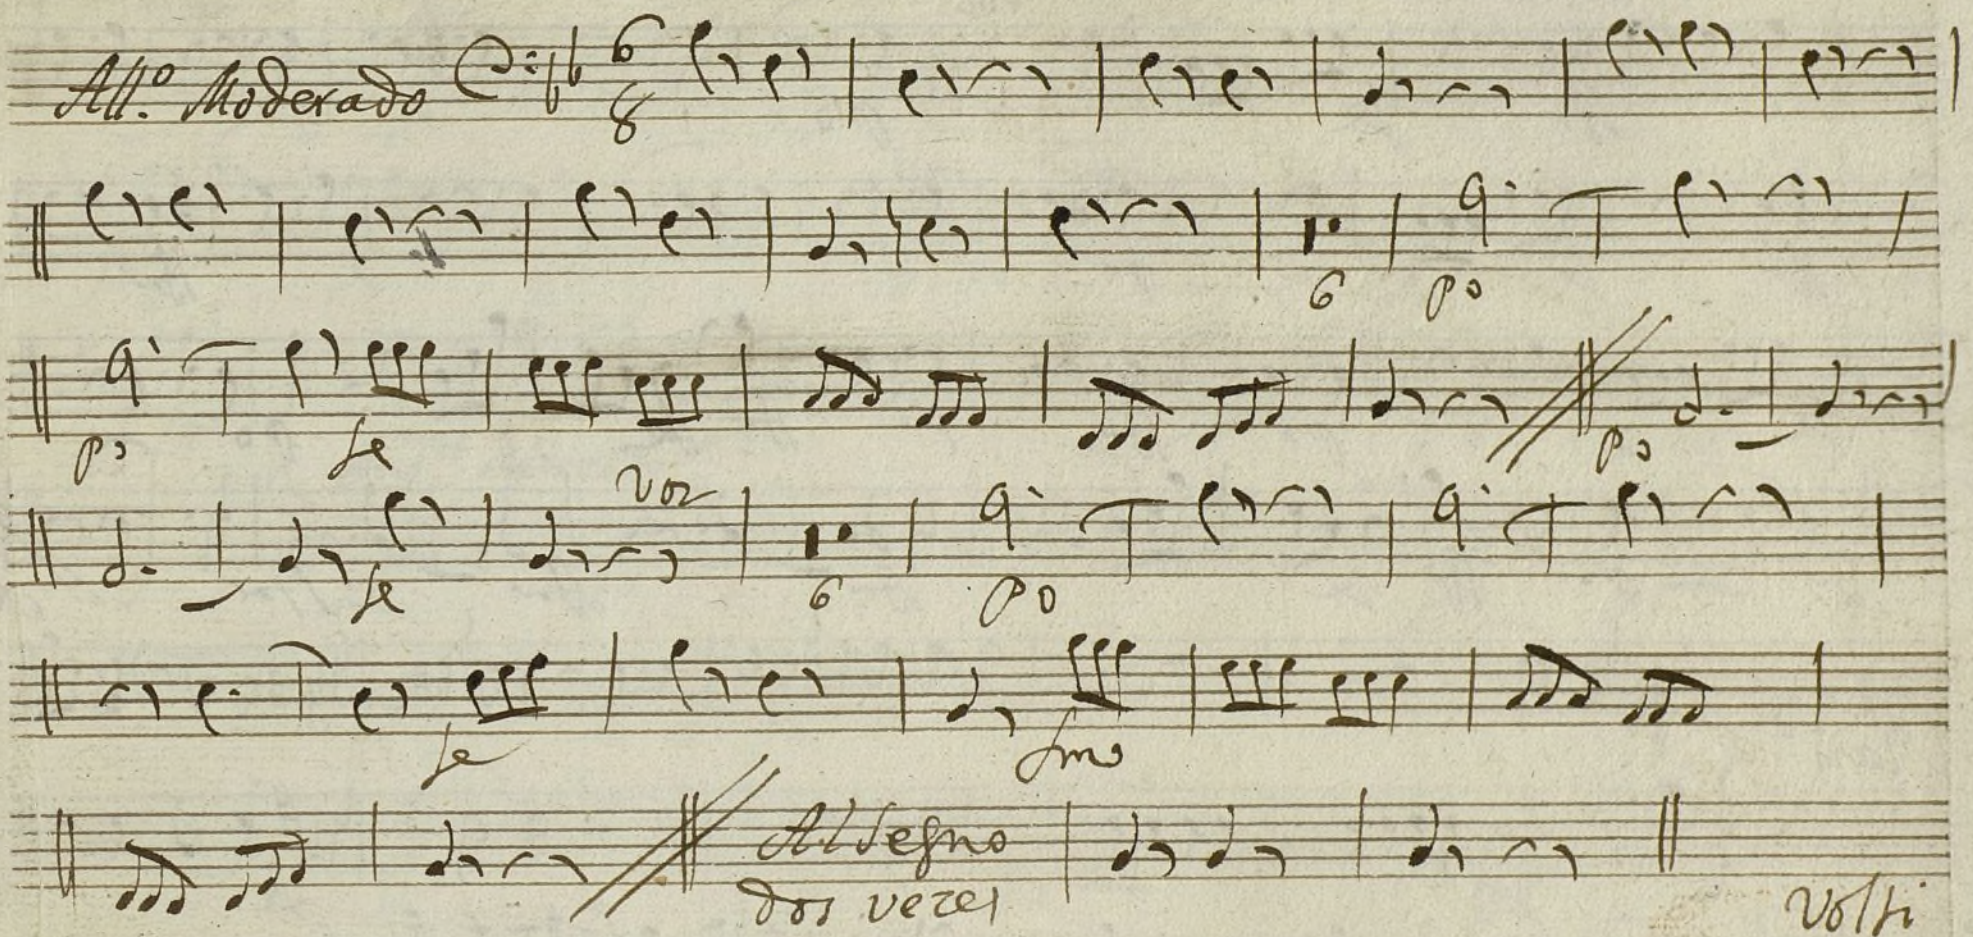 All.º Moderado 6 8
6 po
po fe po
voz
fe 6 po
fe fmo
Al Segno
dos vezes
Volti